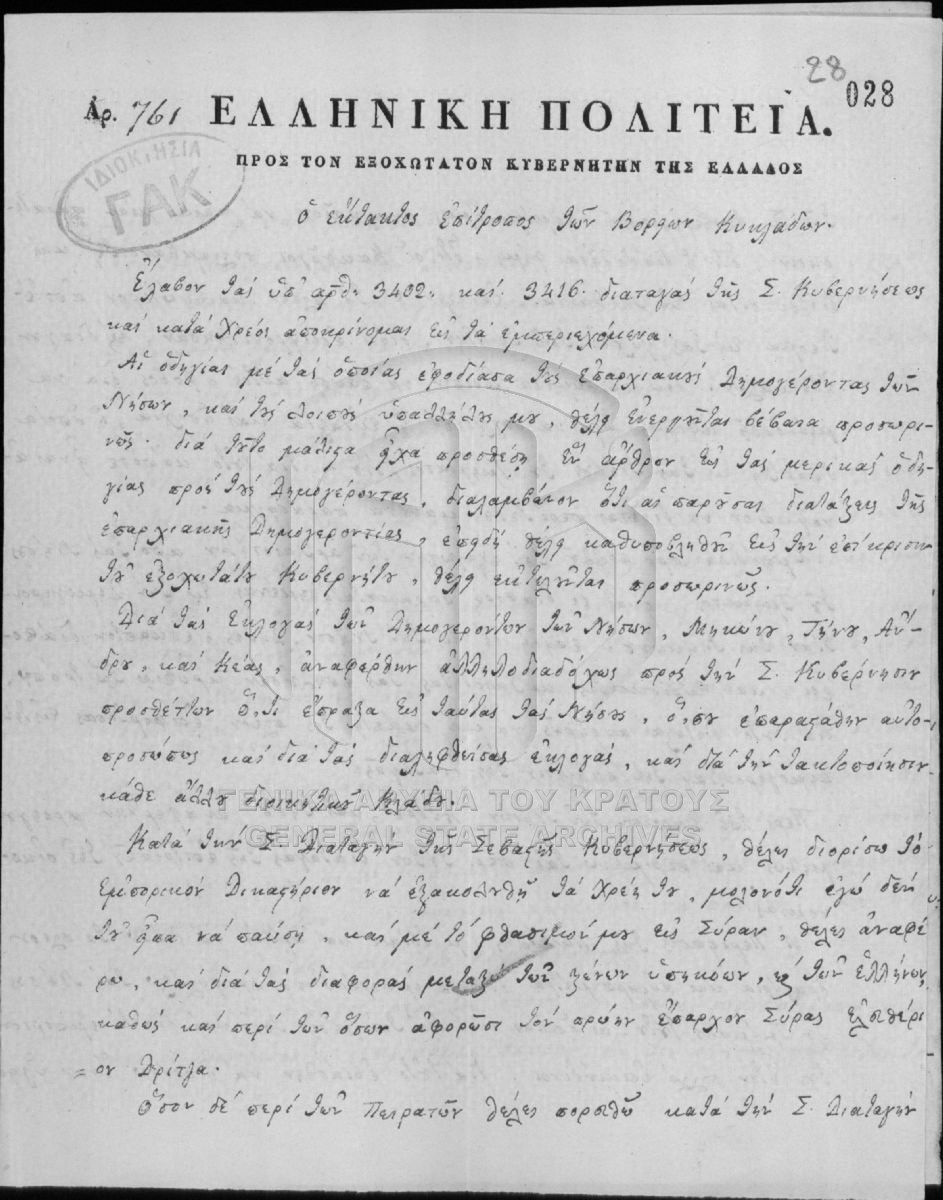 28
028
Αρ. 761 ΕΛΛΗΝΙΚΗ ΠΟΛΙΤΕΙΑ.
ΠΡΟΣ ΤΟΝ ΕΞΟΧΩΤΑΤΟΝ ΚΥΒΕΡΝΗΤΗΝ ΤΗΣ ΕΛΛΑΔΟΣ
ΙΔΙΟΚΤΗΣΙΑ
ΓΑΚ
Ὁ ἔκτακτος ἐπίτροπος τῶν Βορείων Κυκλάδων.
Ἔλαβον τὰς ὑπ' ἀρίθ. 3402, καὶ 3416 διαταγὰς τῆς Σ. Κυβερνήσεως
καὶ κατὰ χρέος ἀποκρίνομαι εἰς τὰ ἐμπεριεχόμενα.
Αἱ ὁδηγίαι μὲ τὰς ὁποίας ἐφοδίασα τοὺς ἐπαρχιακοὺς Δημογέροντας τῶν
Νήσων, καὶ τοὺς λοιποὺς ὑπαλλήλους μου, θέλει ἐνεργοῦνται βέβαια προσωρι-
νῶς· διὰ τοῦτο μάλιστα εἶχα προσθέσῃ ἓν ἄρθρον εἰς τὰς μερικὰς ὁδη-
γίας πρὸς τοὺς Δημογέροντας, διαλαμβάνον ὅτι αἱ παροῦσαι διατάξεις τῆς
ἐπαρχιακῆς Δημογεροντίας, ἐπειδὴ θέλει καθυποβληθῆ εἰς τὴν ἐπίκρισιν
τοῦ ἐξοχωτάτου Κυβερνήτου, θέλει ἐκτελοῦνται προσωρινῶς.
Διὰ τὰς ἐκλογὰς τῶν Δημογερόντων τῶν Νήσων, Μηκόνου, Τήνου, Ἄν-
δρου, καὶ Κέας, ἀναφέρθην ἀλληλοδιαδόχως πρὸς τὴν Σ. Κυβέρνησιν
προσθέττων ὅ,τι ἔπραξα εἰς ταύτας τὰς Νήσους, ὅπου ἐπαραστάθην αὐτο-
προσώπως καὶ διὰ τὰς διαληφθείσας ἐκλογὰς, καὶ διὰ τὴν τακτοποίησιν
κάθε ἄλλου διοικητικοῦ κλάδου.
ΓΕΝΙΚΑ ΑΡΧΕΙΑ ΤΟΥ ΚΡΑΤΟΥΣ
GENERAL STATE ARCHIVES
Κατὰ τὴν Σ. Διαταγὴν τῆς Σεβαστῆς Κυβερνήσεως, θέλει διορίσω τὸ
Ἐμπορικὸν Δικαστήριον νὰ ἐξακολουθῇ τὰ χρέη του, μολονότι ἐγὼ δὲν
τοῦ εἶπα νὰ παύσῃ, καὶ μὲ τὸ φθάσιμόν μου εἰς Σύραν, θέλει ἀναφέ
ρω, καὶ διὰ τὰς διαφορὰς μεταξὺ τῶν ξένων ὑπηκόων, καὶ τῶν ἑλλήνων,
καθὼς καὶ περὶ τῶν ὅσων ἀφορῶσι τὸν πρώην ἔπαρχον Σύρας Ἐλευθέρι
= ον Δρίτζα.
Ὅσον δὲ περὶ τῶν Πειρατῶν θέλει πορευθῶ κατὰ τὴν Σ. Διαταγὴν